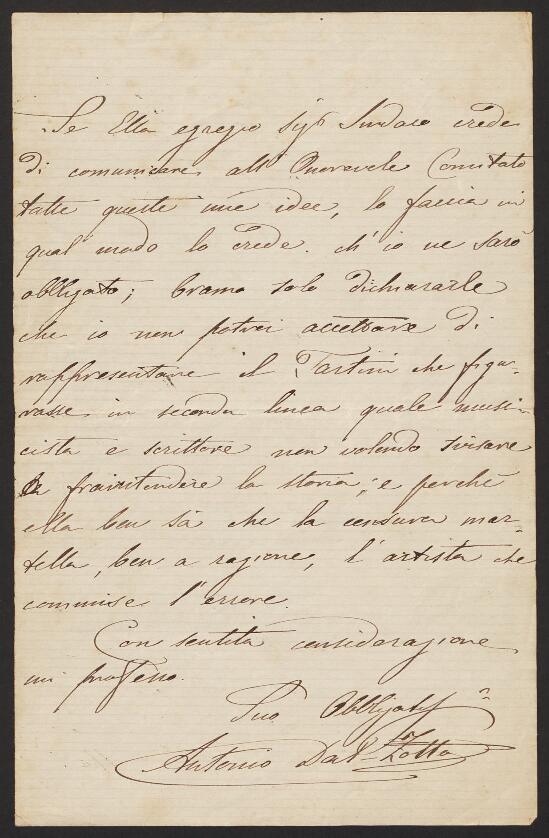 Se Ella egregio Sigr Sindaco crede
di comunicare all' Onorevole Comitato
tutte queste mie idee, lo faccia in
qual modo lo crede. ch'io ne sarò
obbligato; bramo solo dichiararle
che io non potrei accettare di
rappresentare il Tartini che figu-
rasse in seconda linea quale musi-
cista e scrittore non volendo svisare
e fraintendere la storia; e perchè
ella ben sà che la censura mar-
tella, ben a ragione, l'artista che
commise l'errore.
Con sentita considerazione
mi professo.
Suo Obbligatis
Antonio Dal Zotto